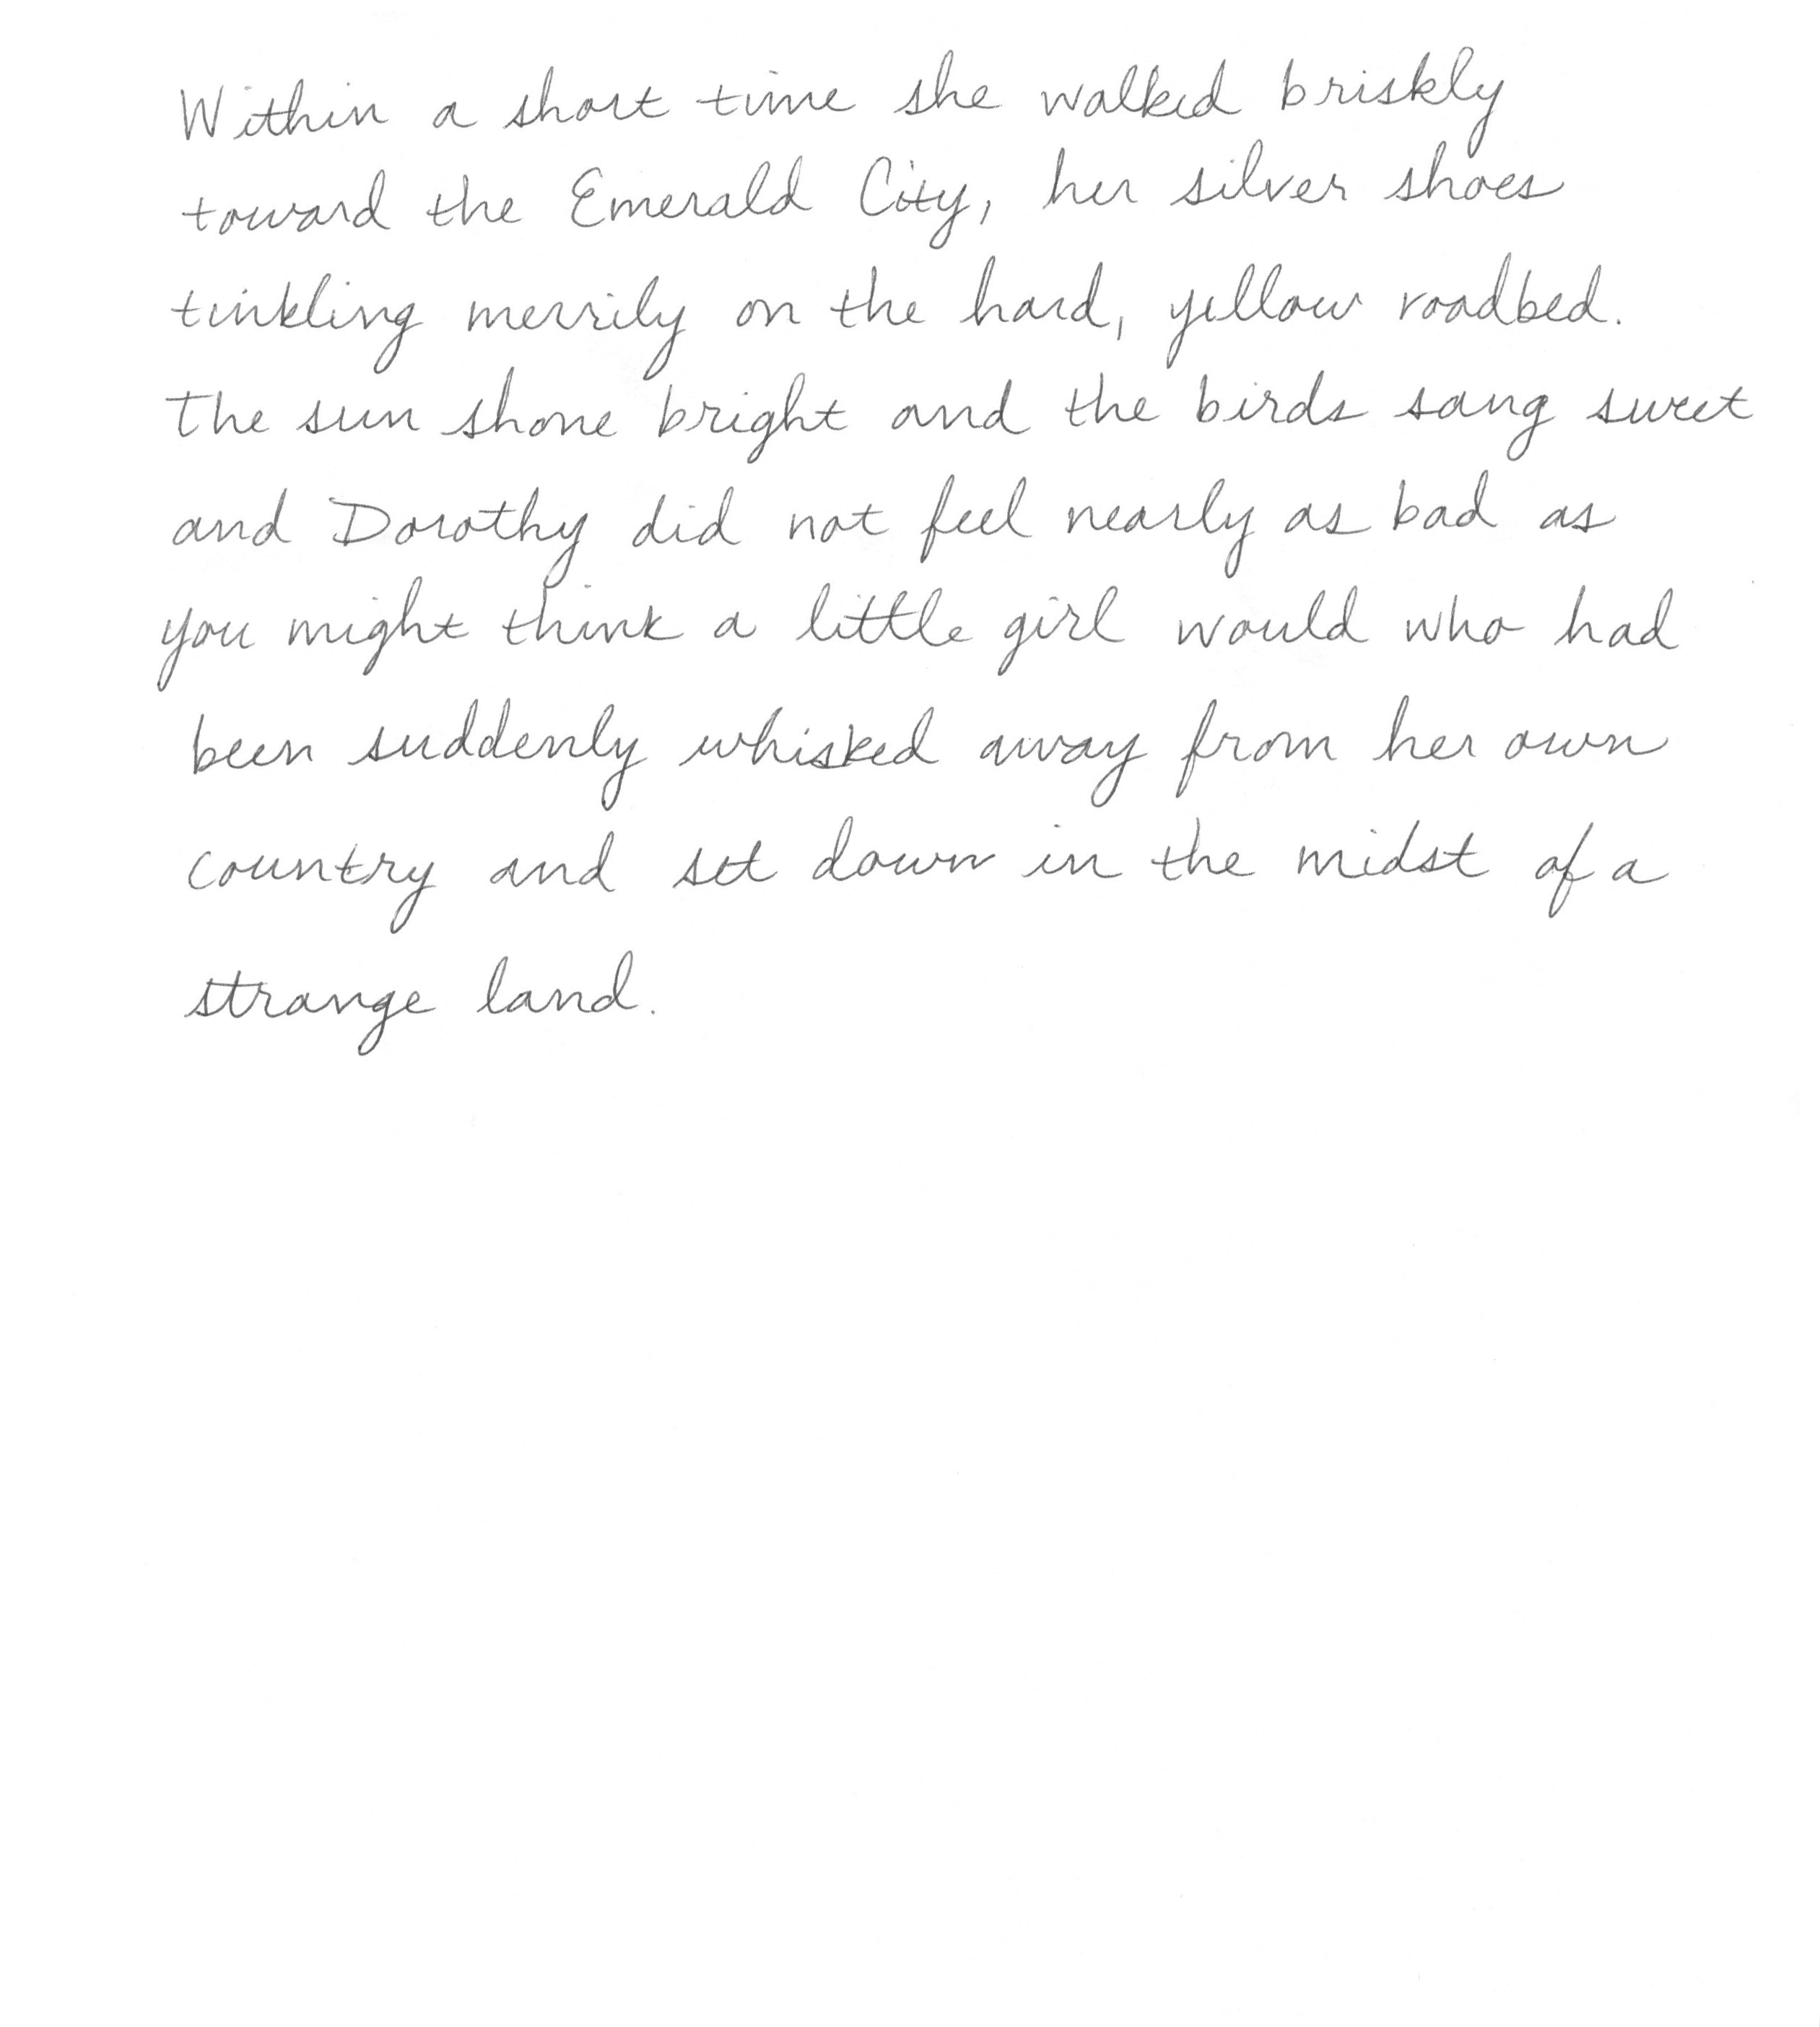 Within a short time she walked briskly
toward the Emerald City, her silver shoes
tinkling merrily on the hard, yellow roadbed.
The sun shone bright and the birds sang sweet
and Dorothy did not feel nearly as bad as
you might think a little girl would who had
been suddenly whisked away from her own
country and set down in the midst of a
strange land.